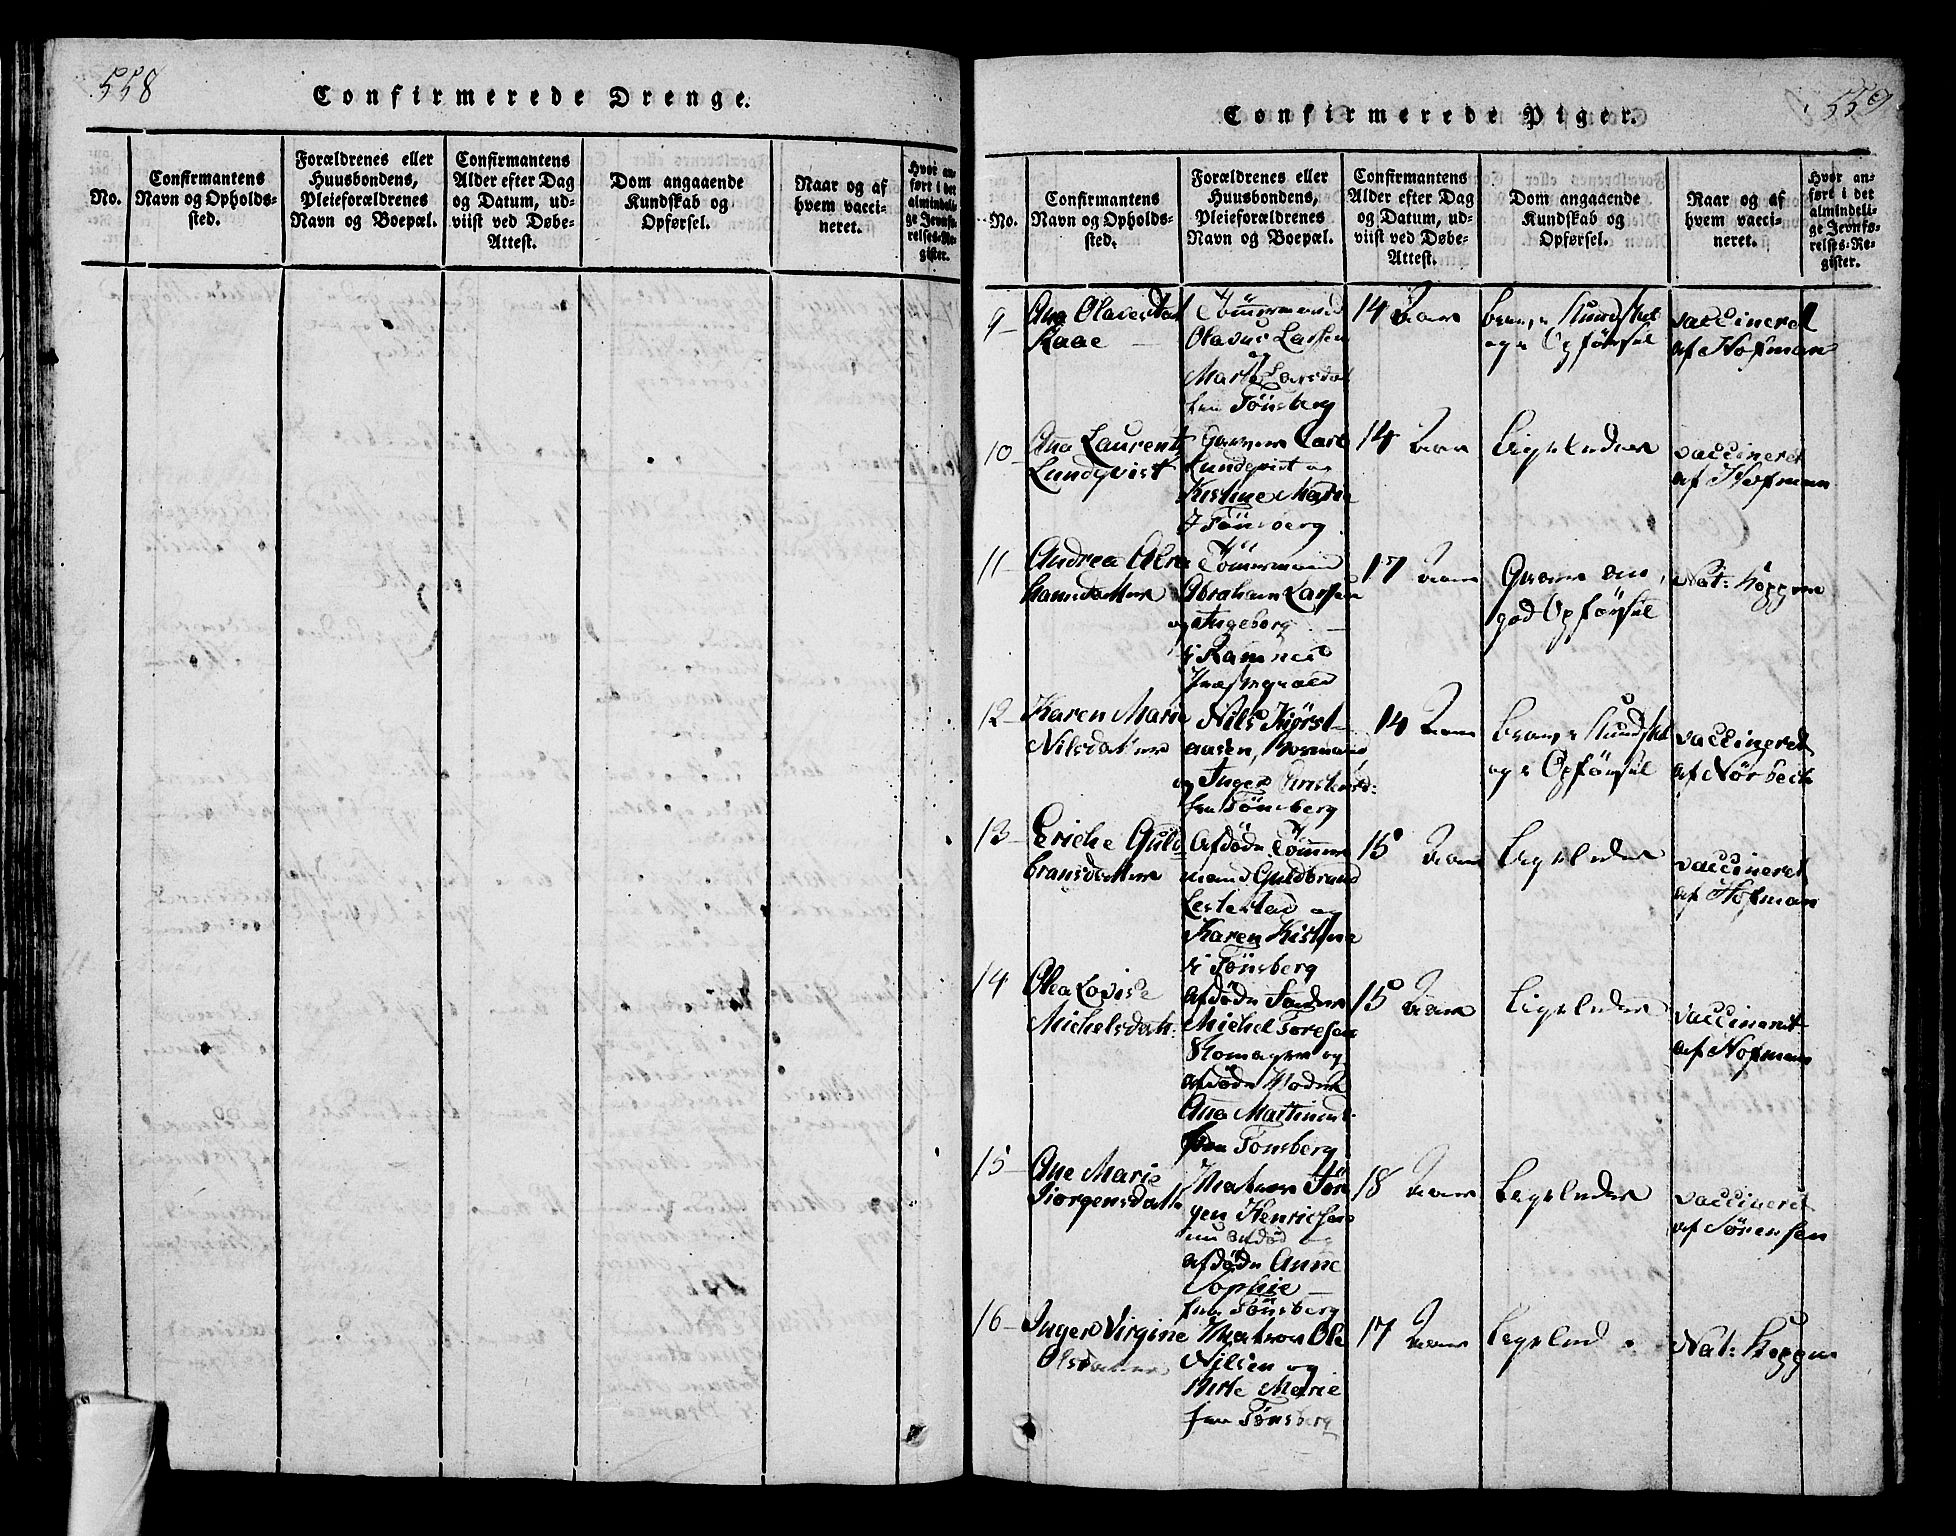 558
Confirmerede Drenge.
No.
Confirmantens
Navn og Opholds-
sted.
Forældrenes eller
Huusbondens,
Pleieforældrenes
Navn og Boepæl.
Confirmantens
Alder efter Dag
og Datum, ud-
viist ved Døbe-
Attest.
Dom angaaende
Kundskab og
Opførsel.
Naar og af
hvem vacci-
neret.
Hvor an-
ført i det
almindeli-
ge Jevnfø-
relses-Re-
gister.
559
Confirmerede Piger.
No.
Confirmantens
Navn og Opholds-
sted.
Forældrenes eller
Huusbondens,
Pleieforældrenes
Navn og Boepæl.
Confirmantens
Alder efter Dag
og Datum, ud-
viist ved Døbe-
Attest.
Dom angaaende
Kundskab og
Opførsel.
Naar og af
hvem vacci-
neret.
Hvor an-
ført i det
almindeli-
ge Jevnfø-
relses-Re-
gister.
9
Ane Olavesdat
Kaae
Tömmermand
Olavus Larsen
og
Marte Larsdat
fra Tönsberg
14 Aar
Kundskab
og Opförsel
vaccineret
af Hofman
10
Ane Laurentz
Lundqvist
Carl
Lundqvist og
Kistine Marie
i Tönsberg
14 Aar
Ligeledes
vaccineret
af Hofman
11
Andrea Abra
hamsdatter
Tömermand
Abraham Larsen
og Ingeborg
i Ramnes
Præstegield
17 Aar
god Opförsel
Nat: Kopper
12
Karen Marie
Nilsdatter
Nils Kjörst-
aasen,
og Inger
fra Tönsberg
14 Aar
Kundskab
og Opförsel
vaccineret
af Nörbech
13
Guld
bransdatter
Afdöde Tömmer
mand Guldbrand
og
Karen Kistine
i Tönsberg
15 Aar
Ligeledes
vaccineret
af Hofman
14
Olea Lovise
Michelsdatt:
Afdöde Fader
Michel Toresen
Komager og
afdöde Moder
Ane
fra Tönsberg
15 Aar
Ligeledes
vaccineret
af Hofman
15
Ane Marie
Jörgensdatt
Matros Jör
gen Henriksen
nu afdöd og
afdöde Anne
Sophie
fra Tönsberg
18 Aar
Ligeledes
vaccineret
af Sörensen
16
Inger Virgine
Olsdatter
Matros Ole
Nilsen og
Marie
fra Tönsberg
17 Aar
Ligeled
Nat: Kopper